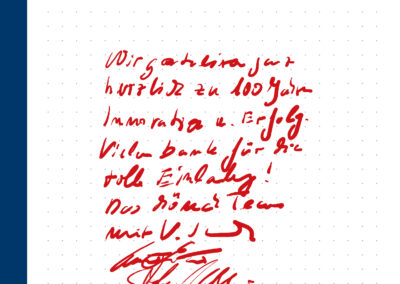 Wir gratulieren ganz
herzlich zu 100 Jahren
Innovation u. Erfolg.
Vielen Dank für die
tolle Einladung!
Das Team
mit V.